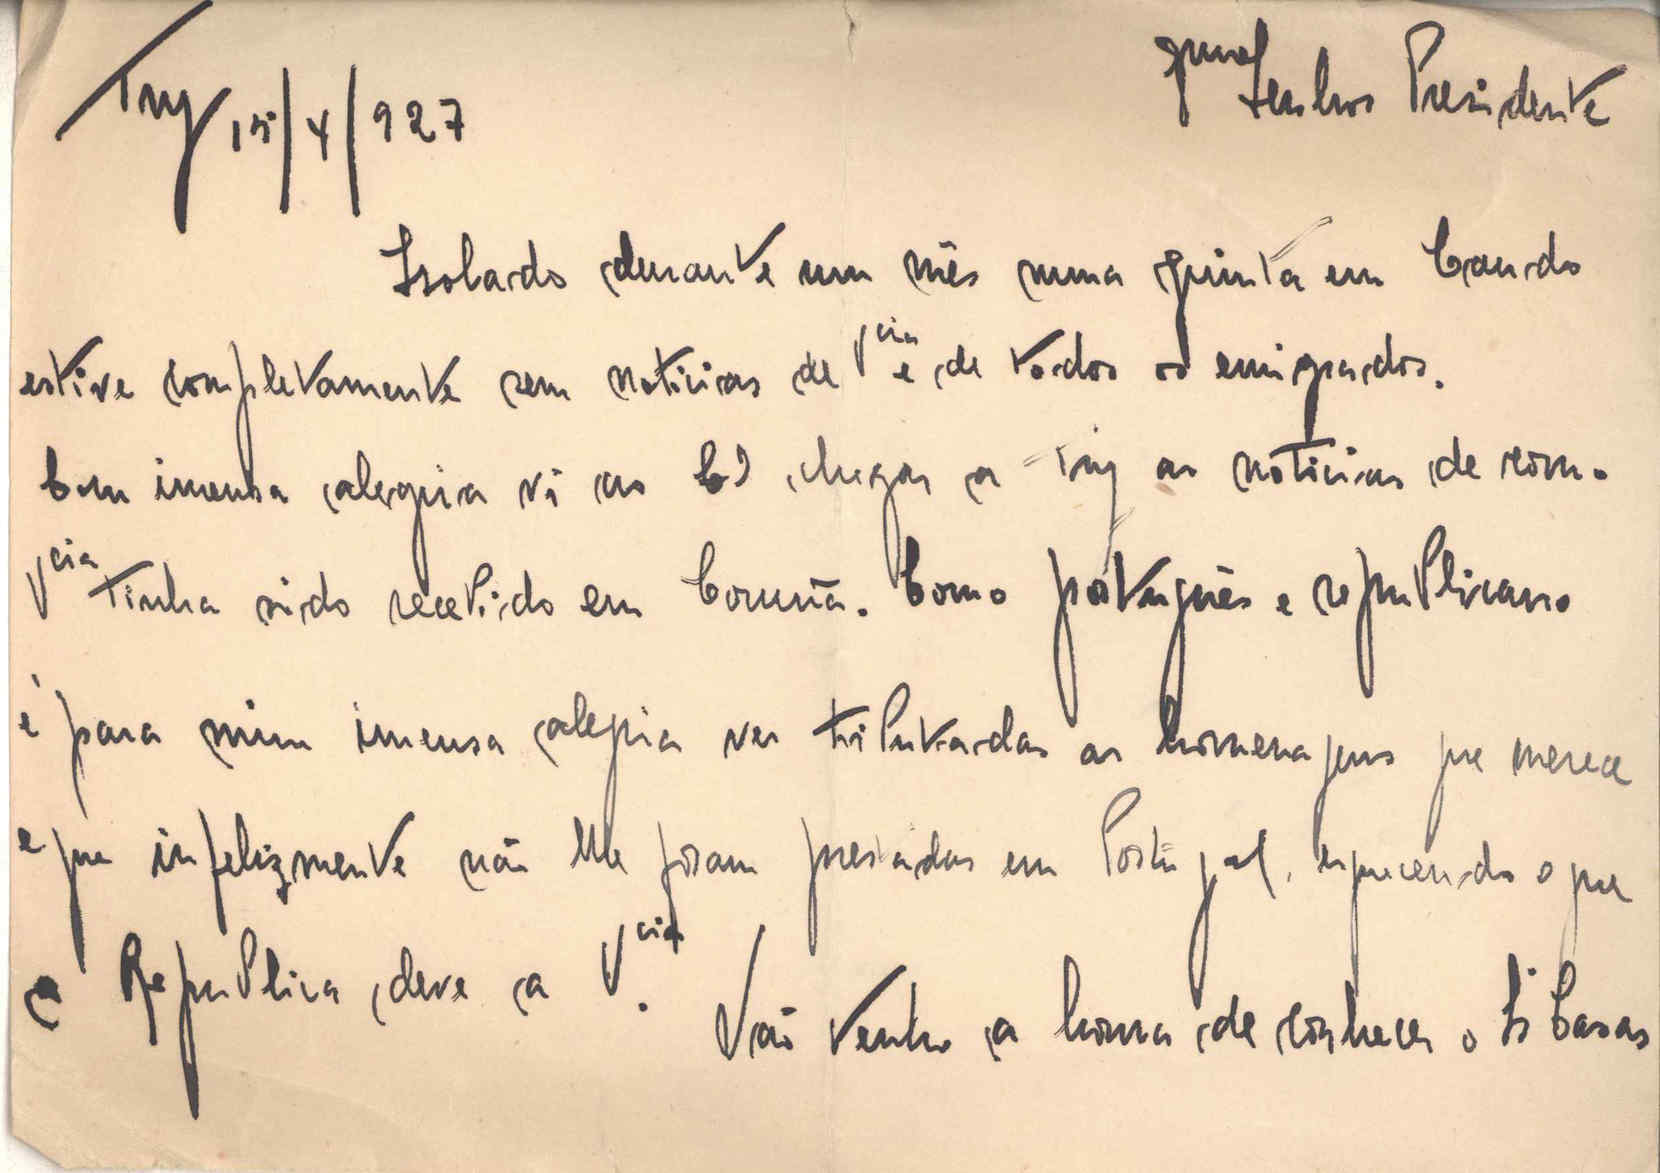 Tuy 15/4/927
Exmo Senhor Presidente
Isolado durante um mês numa quinta em
estive completamente sem noticias de Vcia e de todos os emigrados.
Com imensa alegria vi ao chegar a Tuy as noticias de como
Vcia tinha sido recebido em Coruña. Como português e republicano
é para mim imensa alegria ver tributadas as homenagens que merece
e que infelizmente não lhe foram prestadas em Portugal, esquecendo o que
a Republica deve a Vcia.
Não tenho a honra de conhecer o Sr Casas